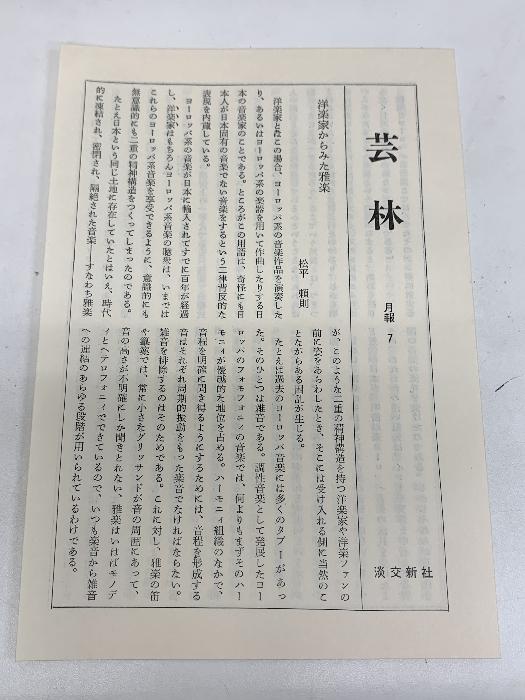 芸林
月報 7
淡交新社
洋楽家からみた雅楽
松平 頼則
洋楽家とはこの場合、ヨーロッパ系の音楽作品を演奏した
り、あるいはヨーロッパ系の楽器を用いて作曲したりする日
本の音楽家のことである。ところがこの用語は、奇怪にも日
本人が日本固有の音楽でない音楽をするという二律背反的な
表現を内蔵している。
ヨーロッパ系の音楽が日本に輸入されてすでに百年が経過
し、洋楽家はもちろんヨーロッパ系音楽の聴衆は、いまでは
これらのヨーロッパ系音楽を享受できるように、意識的にも
無意識的にも二重の精神構造をつくってしまったのである。
たとえ日本という同じ土地に存在していたとはいえ、時代
的に凍結され、密閉され、隔絶された音楽――すなわち雅楽
が、このような二重の精神構造を持つ洋楽家や洋楽ファンの
前に姿をあらわしたとき、そこには受け入れる側に当然のこ
とながらある困乱が生じる。
たとえば過去のヨーロッパ音楽には多くのタブーがあっ
た。そのひとつは雑音である。調性音楽として発展したヨー
ロッパのフォモフォニィの音楽では、何よりもまずそのハー
モニィが優越的な地位を占める。ハーモニィ組織のなかで、
音程を明確に聞き得るようにするためには、音程を形成する
音はそれぞれ周期的振動をもった楽音でなければならない。
雑音を排除するのはそのためである。これに対し、雅楽の笛
や篳篥では、常に小さなグリッサンドが音の周囲にあって、
音の高さが不明確にしか聞きとれない。雅楽はいわばモノデ
ィとヘテロフォニィでできているので、いつも楽音から雑音
への連結のあらゆる段階が用いられているわけである。